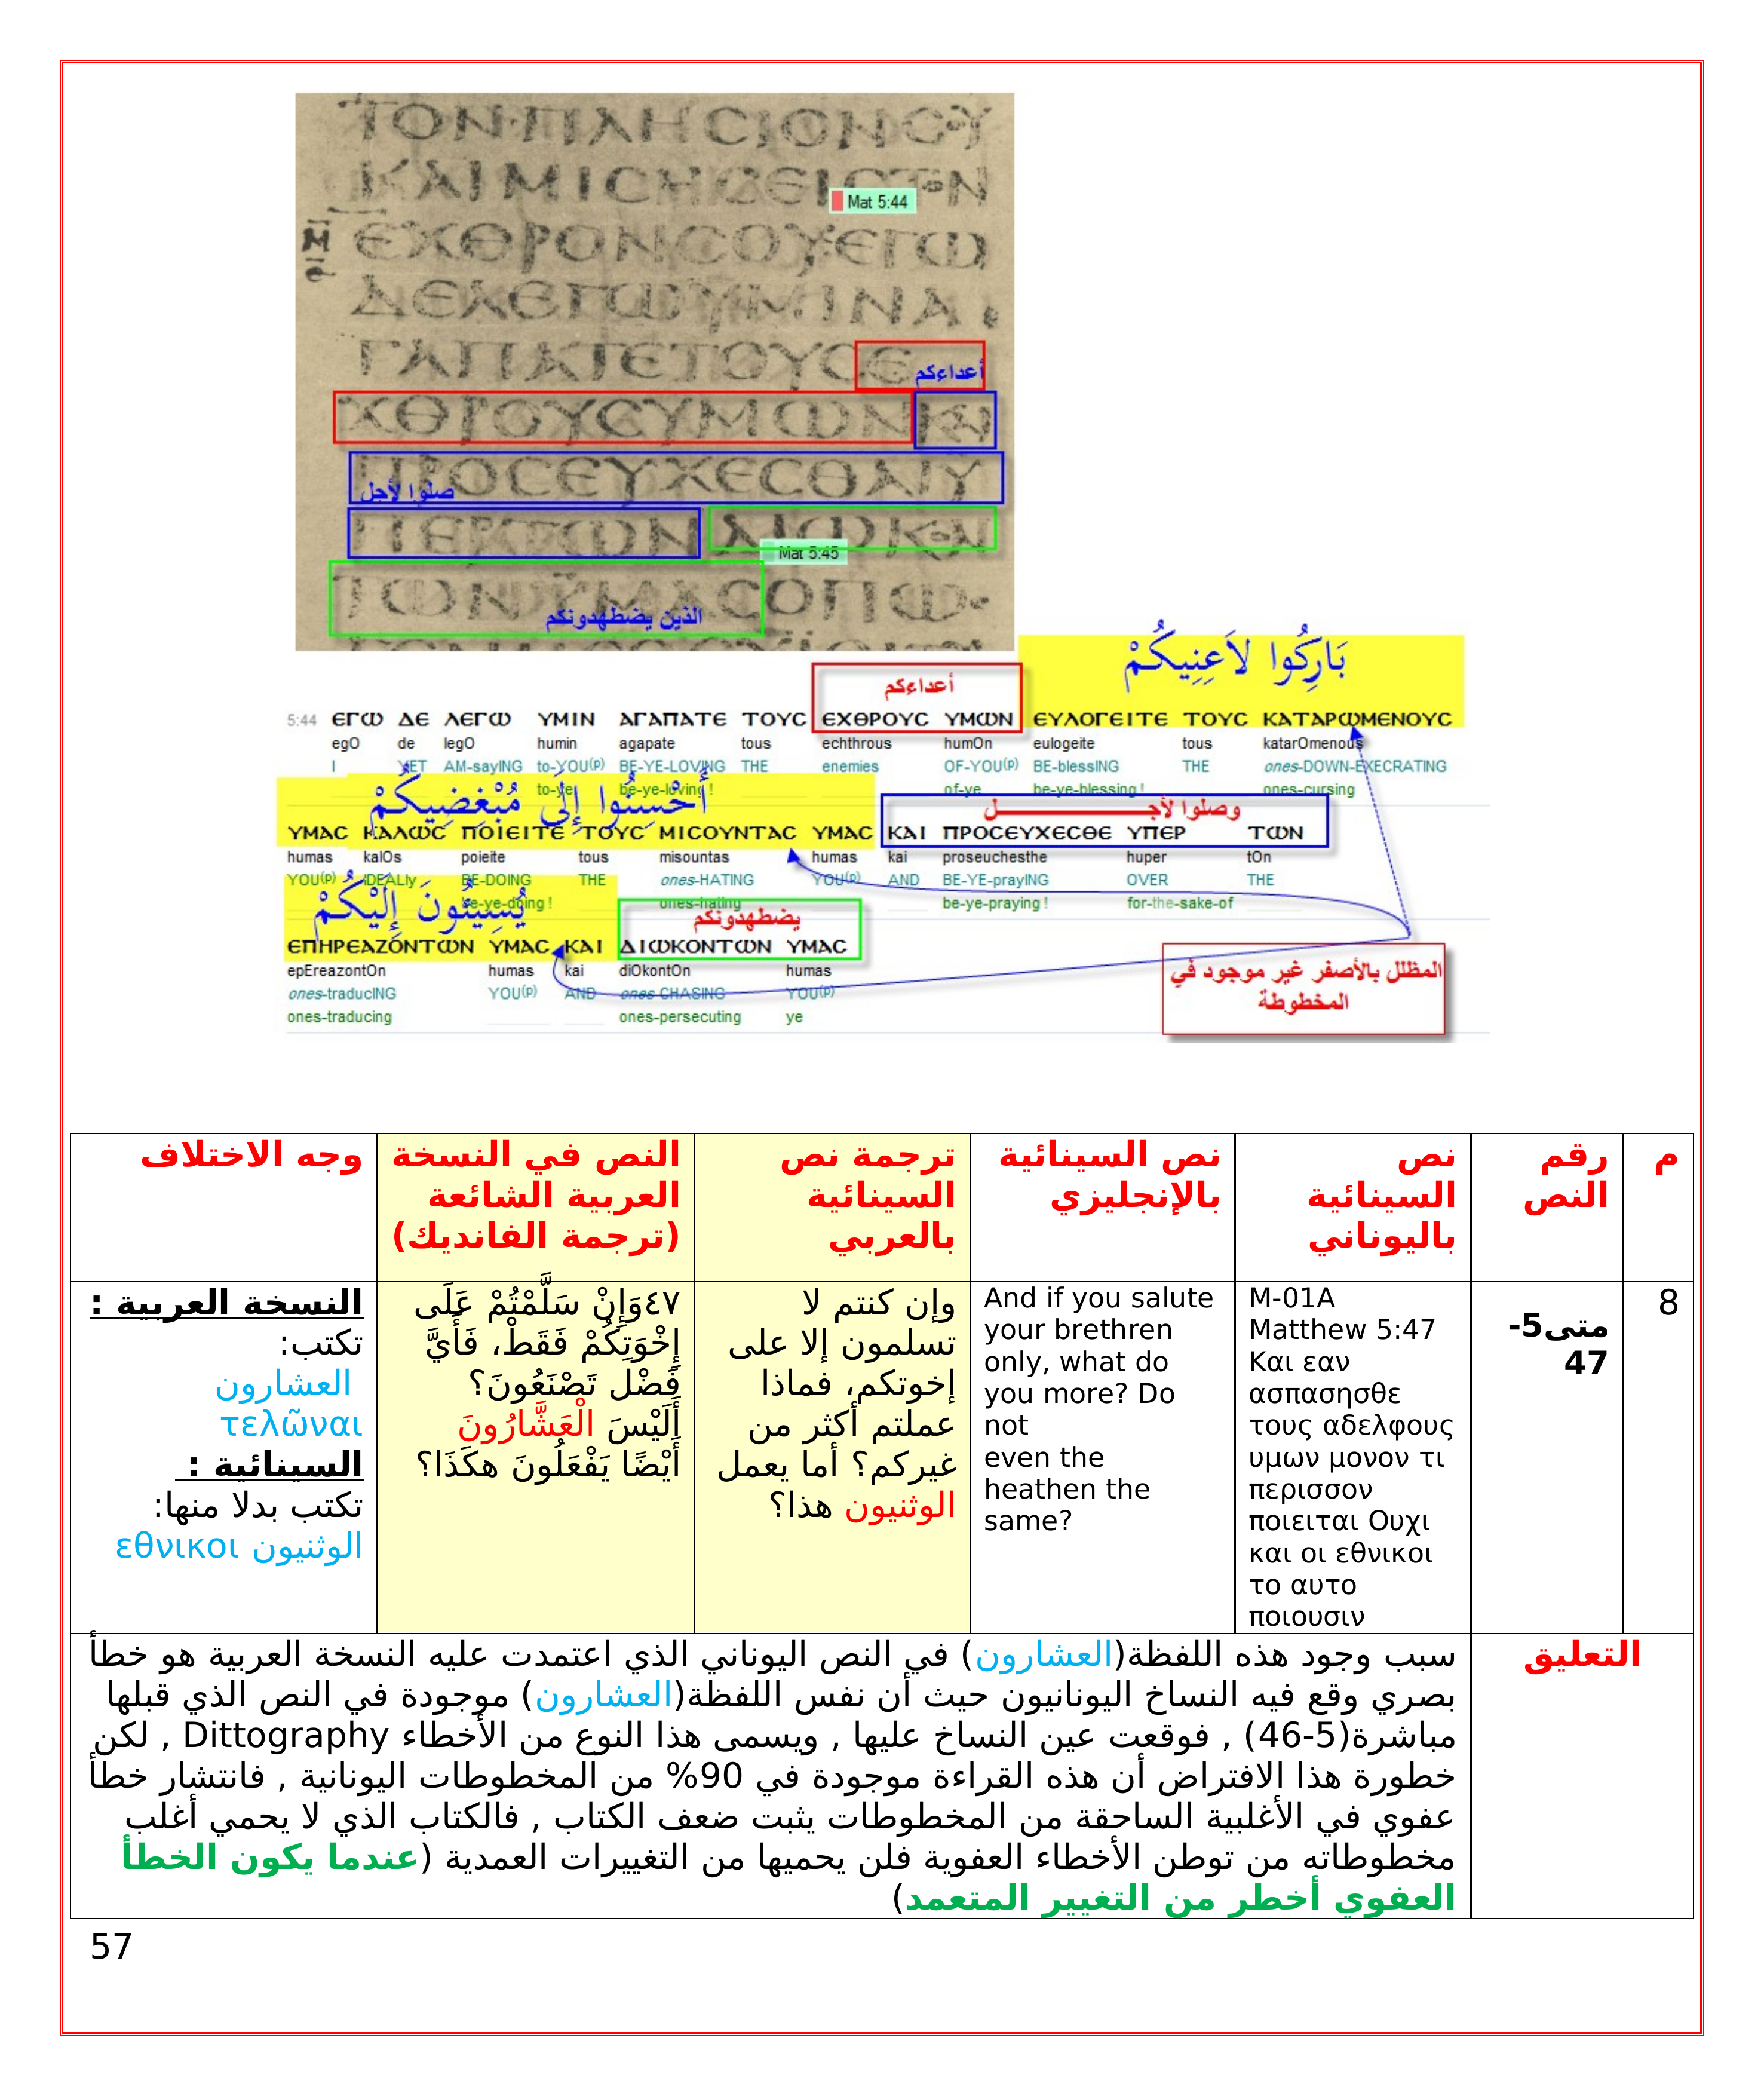 ΤΟΝΠΛΗϹΙΟΝϹΟΥ
ΚΑΙΜΙϹΗϹΕΙϹΤΟΝ
Mat 5:44
ΕΧΘΡΟΝϹΟΥΕΓΩ
ΔΕΛΕΓΩΥΜΙΝΑ
ΓΑΠΑΤΕΤΟΥϹΕ
أعداءكم
ΧΘΡΟΥϹΥΜΩΝΚΑΙ
ΠΡΟϹΕΥΧΕϹΘΑΙΥ
صلوا لأجل
ΠΕΡΤΩΝΔΙΩΚΟΝ
Mat 5:45
ΤΩΝΥΜΑϹΟΠΩϹ
الذين يضطهدونكم
بَارِكُوا لاَعِنِيكُمْ
أعداءكم
5:44 ΕΓΩ ΔΕ ΛΕΓΩ ΥΜΙΝ ΑΓΑΠΑΤΕ ΤΟΥϹ ΕΧΘΡΟΥϹ ΥΜΩΝ ΕΥΛΟΓΕΙΤΕ ΤΟΥϹ ΚΑΤΑΡΩΜΕΝΟΥϹ
egO de legO humin agapate tous echthrous humOn eulogeite tous katarOmenous
I YET AM-sayING to-YOU(p) BE-YE-LOVING THE enemies OF-YOU(p) BE-blessING THE ones-DOWN-EXECRATING
to-ye be-ye-loving ! of-ye be-ye-blessing ! ones-cursing
أَحْسِنُوا إِلَى مُبْغِضِيكُمْ
وصلوا لأجـــــــــــل
ΥΜΑϹ ΚΑΛΩϹ ΠΟΙΕΙΤΕ ΤΟΥϹ ΜΙϹΟΥΝΤΑϹ ΥΜΑϹ ΚΑΙ ΠΡΟϹΕΥΧΕϹΘΕ ΥΠΕΡ ΤΩΝ
humas kalOs poieite tous misountas humas kai proseuchesthe huper tOn
YOU(p) IDEALly BE-DOING THE ones-HATING YOU(p) AND BE-YE-prayING OVER THE
be-ye-doing ! ones-hating be-ye-praying ! for-the-sake-of
يُسِيئُونَ إِلَيْكُمْ
يضطهدونكم
ΕΠΗΡΕΑΖΟΝΤΩΝ ΥΜΑϹ ΚΑΙ ΔΙΩΚΟΝΤΩΝ ΥΜΑϹ
epEreazontOn humas kai diOkontOn humas
ones-traducING YOU(p) AND ones-CHASING YOU(p)
ones-traducing ones-persecuting ye
المظلل بالأصفر غير موجود في
المخطوطة
م
رقم
النص
نص
السينائية
باليوناني
نص السينائية
بالإنجليزي
ترجمة نص
السينائية
بالعربي
النص في النسخة
العربية الشائعة
(ترجمة الفانديك)
وجه الاختلاف
8
متى5-
47
M-01A
Matthew 5:47
Και εαν
ασπασησθε
τους αδελφους
υμων μονον τι
περισσον
ποιειται Ουχι
και οι εθνικοι
το αυτο
ποιουσιν
And if you salute
your brethren
only, what do
you more? Do
not
even the
heathen the
same?
وإن كنتم لا
تسلمون إلا على
إخوتكم، فماذا
عملتم أكثر من
غيركم؟ أما يعمل
الوثنيون هذا؟
٤٧وَإِنْ سَلَّمْتُمْ عَلَى
إِخْوَتِكُمْ فَقَطْ، فَأَيَّ
فَضْل تَصْنَعُونَ؟
أَلَيْسَ الْعَشَّارُونَ
أَيْضًا يَفْعَلُونَ هكَذَا؟
النسخة العربية :
تكتب:
العشارون
τελῶναι
السينائية :
تكتب بدلا منها:
الوثنيون εθνικοι
التعليق
سبب وجود هذه اللفظة(العشارون) في النص اليوناني الذي اعتمدت عليه النسخة العربية هو خطأ
بصري وقع فيه النساخ اليونانيون حيث أن نفس اللفظة(العشارون) موجودة في النص الذي قبلها
مباشرة(5-46) , فوقعت عين النساخ عليها , ويسمى هذا النوع من الأخطاء Dittography , لكن
خطورة هذا الافتراض أن هذه القراءة موجودة في 90% من المخطوطات اليونانية , فانتشار خطأ
عفوي في الأغلبية الساحقة من المخطوطات يثبت ضعف الكتاب , فالكتاب الذي لا يحمي أغلب
مخطوطاته من توطن الأخطاء العفوية فلن يحميها من التغييرات العمدية (عندما يكون الخطأ
العفوي أخطر من التغيير المتعمد)
57